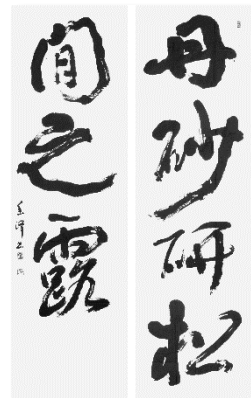 丹砂研松
間之露